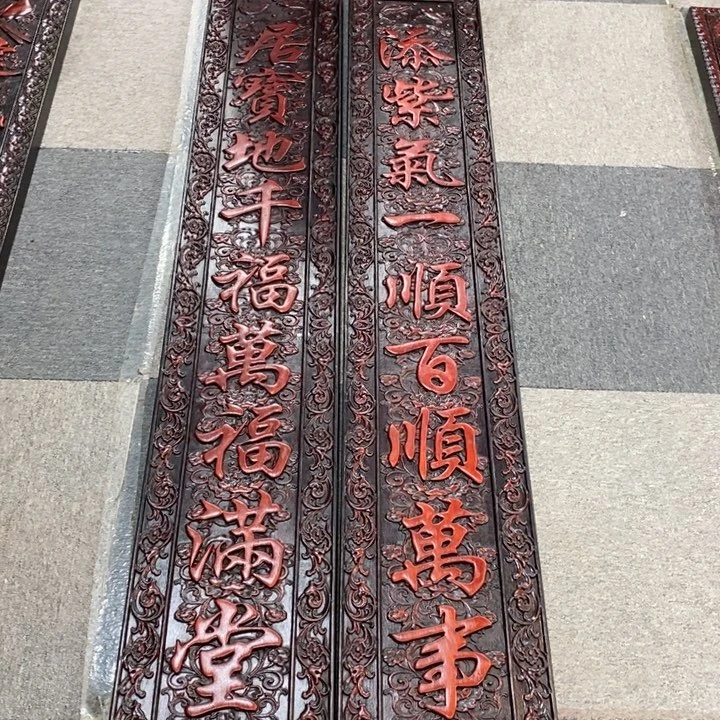 添紫氣一順百順萬事
居寶地千福萬福滿堂